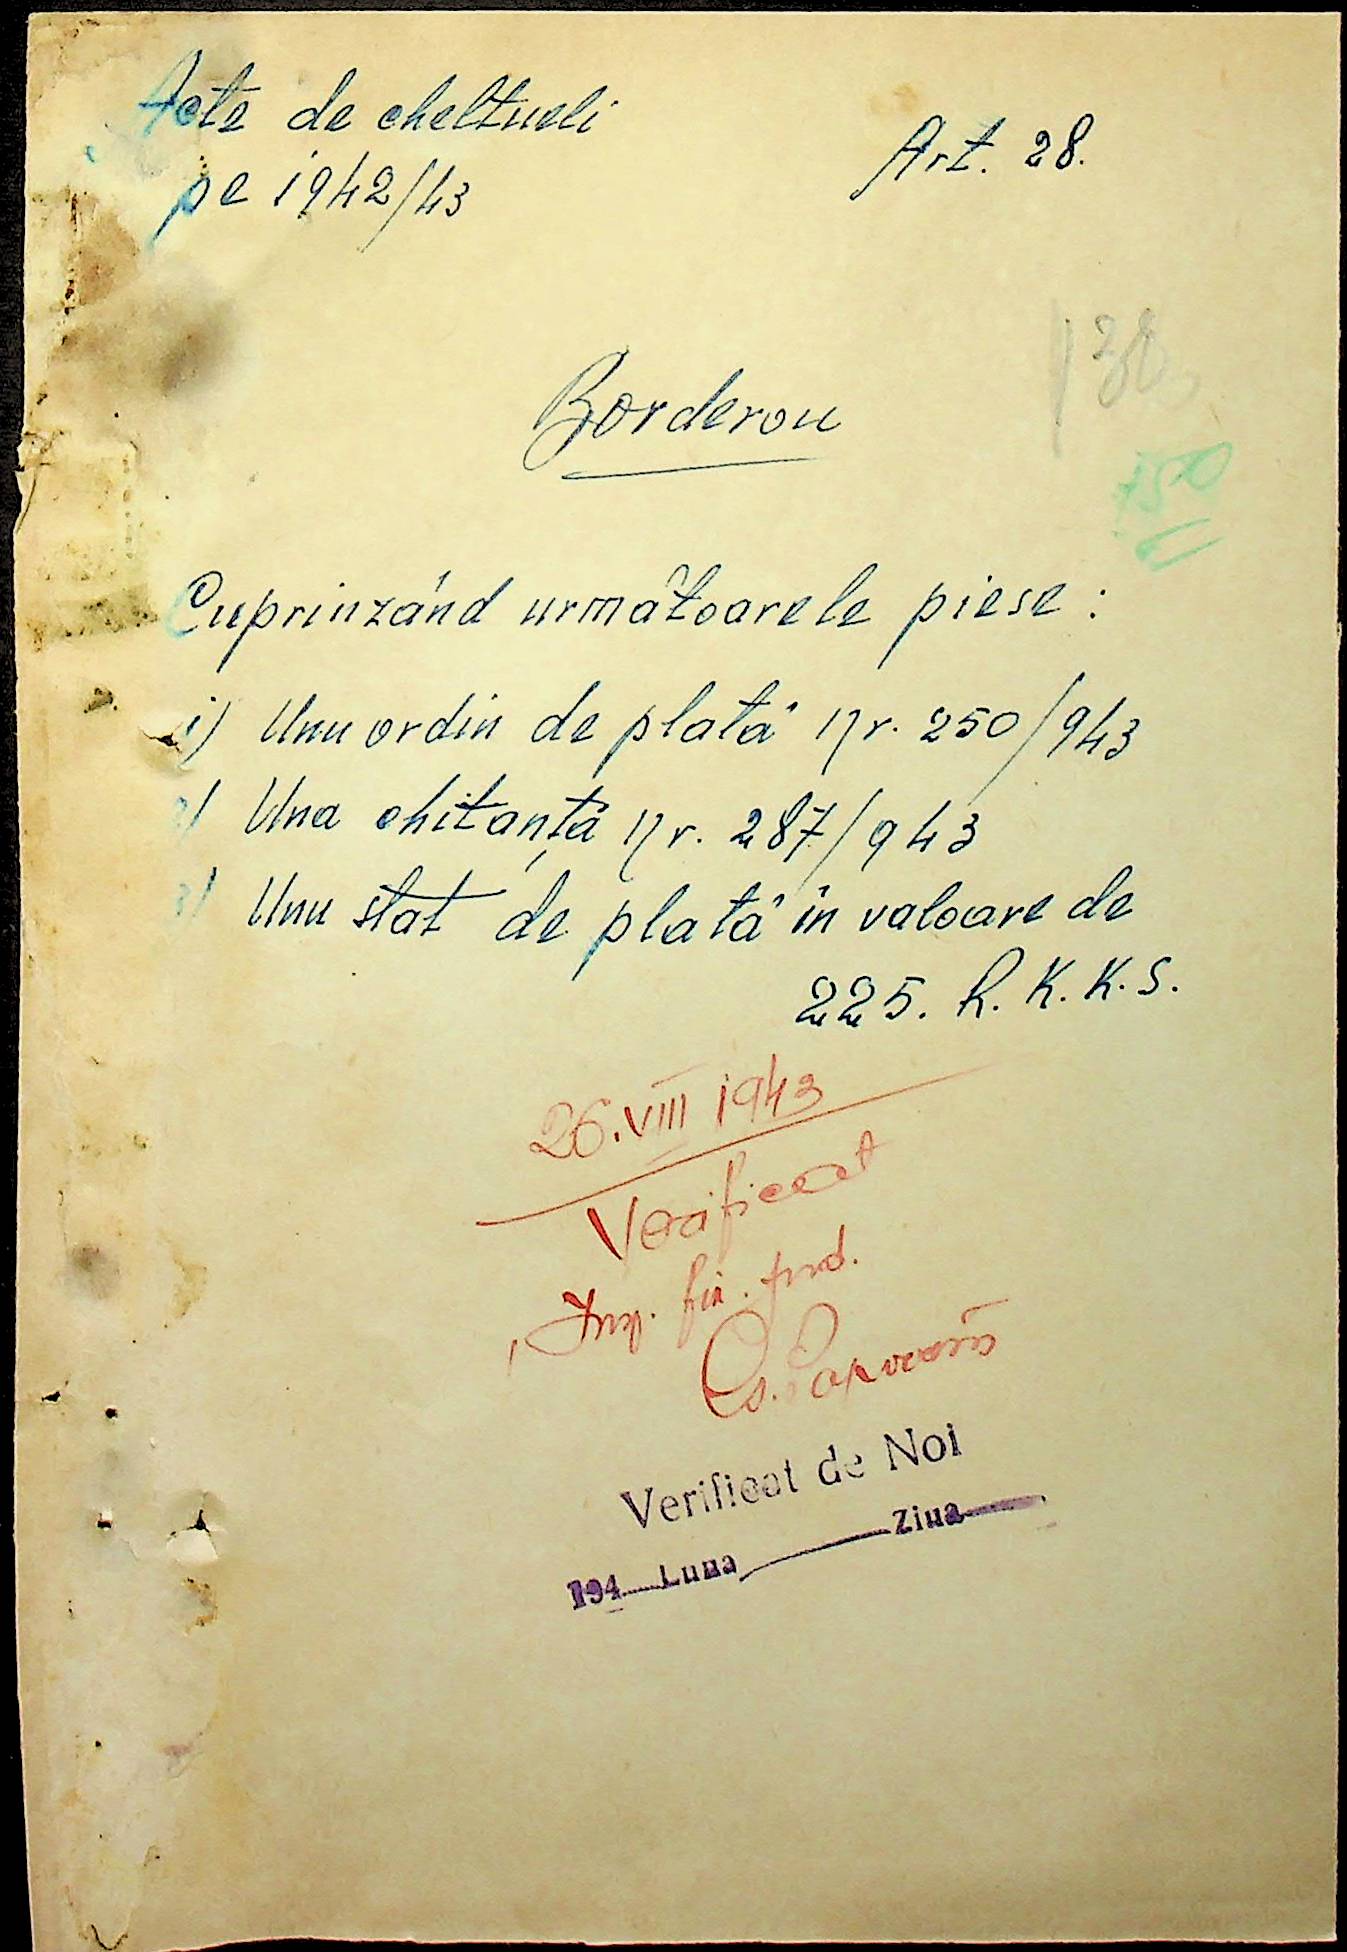 Acte de cheltueli
Art. 28.
pe 1942/43
Borderou
150
Cuprinzând următoarele piese :
1) Unu ordin de plată Nr. 250/943
2) Una chitanță Nr. 287/943
3) Unu stat de plată în valoare de
225. R. K. K. S.
26. VIII 1943
Verificat
Insp. fin.
Verificat de Noi
194 Luna Ziua